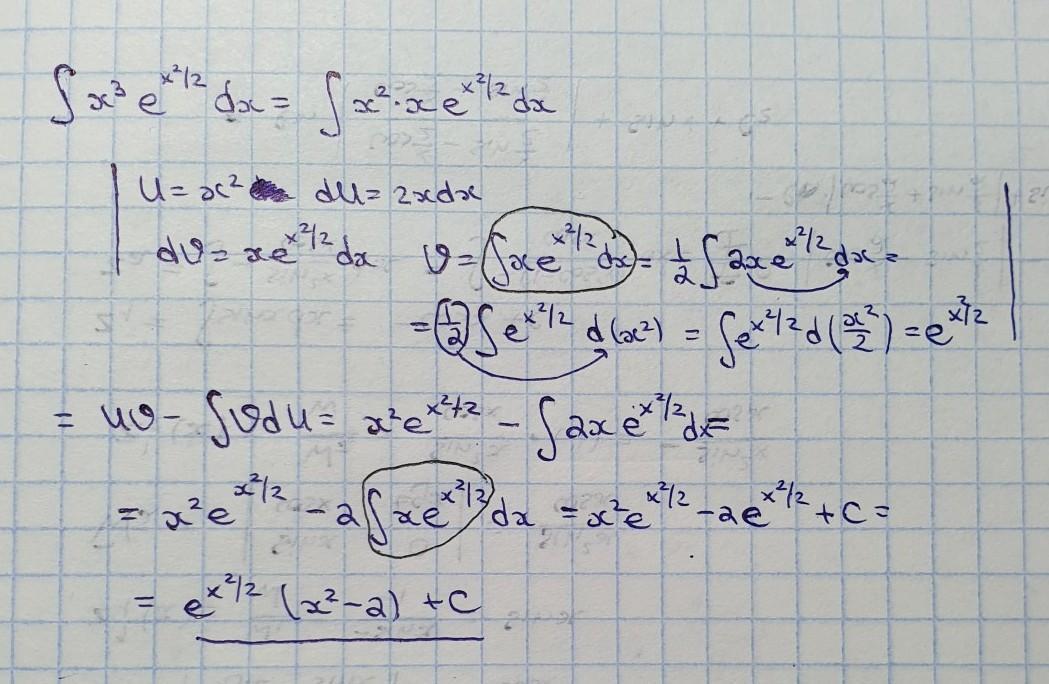 ∫ x³ e^(x²/2) dx = ∫ x² · x e^(x²/2) dx
| U = x² dU = 2x dx
dϑ = x e^(x²/2) dx ϑ = ∫ x e^(x²/2) dx = 1/2 ∫ 2x e^(x²/2) dx = |
= 1/2 ∫ e^(x²/2) d(x²) = ∫ e^(x²/2) d(x²/2) = e^(x²/2)
= Uϑ - ∫ ϑ dU = x² e^(x²/2) - ∫ 2x e^(x²/2) dx =
= x² e^(x²/2) - 2 ∫ x e^(x²/2) dx = x² e^(x²/2) - 2e^(x²/2) + C =
= e^(x²/2) (x² - 2) + C